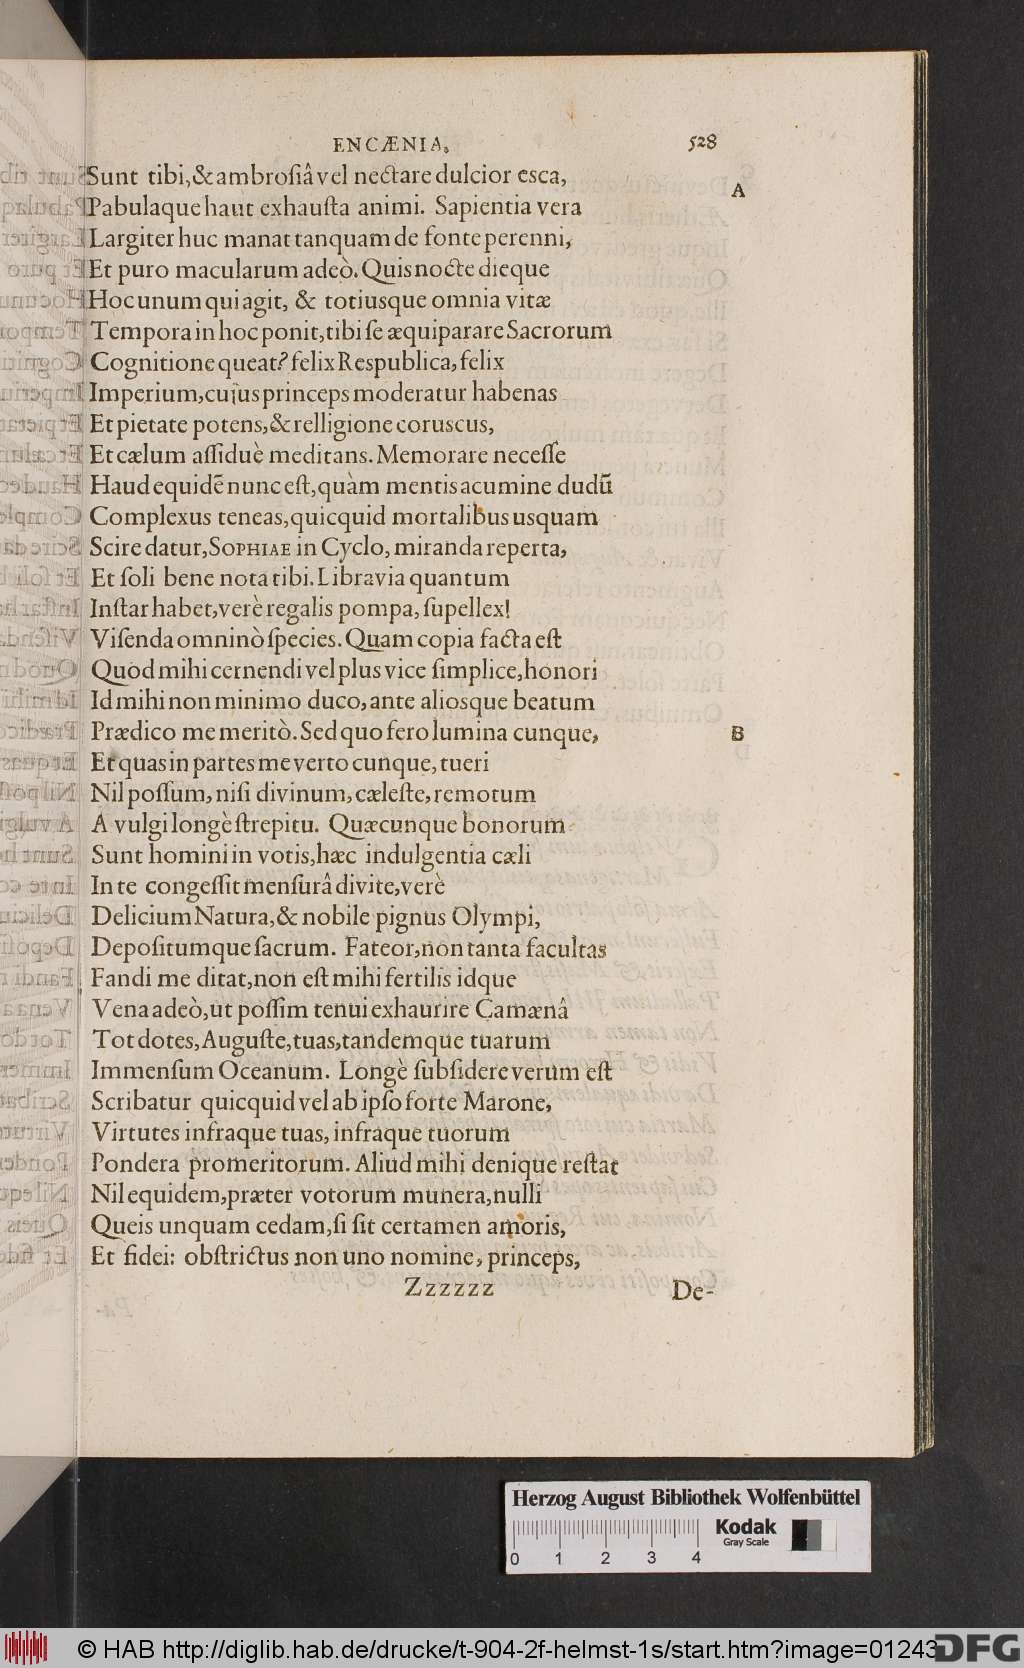 ENCÆNIA. 528
Sunt tibi, & ambrosiâ vel nectare dulcior esca, A
Pabulaque haut exhausta animi. Sapientia vera
Largiter huc manat tanquam de fonte perenni,
Et puro macularum adeò. Quis nocte dieque
Hoc unum qui agit, & totiusque omnia vitæ
Tempora in hoc ponit, tibi se æquiparare Sacrorum
Cognitione queat? felix Respublica, felix
Imperium, cuius princeps moderatur habenas
Et pietate potens, & relligione coruscus,
Et cælum assiduè meditans. Memorare necesse
Haud equidē nunc est, quàm mentis acumine dudū
Complexus teneas, quicquid mortalibus usquam
Scire datur, SOPHIAE in Cyclo, miranda reperta,
Et soli bene nota tibi. Libravia quantum
Instar habet, verè regalis pompa, supellex!
Visenda omninò species. Quam copia facta est
Quod mihi cernendi vel plus vice simplice, honori
Id mihi non minimo duco, ante aliosque beatum
Prædico me meritò. Sed quo fero lumina cunque, B
Et quas in partes me verto cunque, tueri
Nil possum, nisi divinum, cæleste, remotum
A vulgi longè strepitu. Quæcunque bonorum
Sunt homini in votis, hæc indulgentia cæli
In te congessit mensurâ divite, verè
Delicium Natura, & nobile pignus Olympi,
Depositumque sacrum. Fateor, non tanta facultas
Fandi me ditat, non est mihi fertilis idque
Vena adeò, ut possim tenui exhaurire Camænâ
Tot dotes, Auguste, tuas, tandemque tuarum
Immensum Oceanum. Longè subsidere verum est
Scribatur quicquid vel ab ipso forte Marone,
Virtutes infraque tuas, infraque tuorum
Pondera promeritorum. Aliud mihi denique restat
Nil equidem, præter votorum munera, nulli
Queis unquam cedam, si sit certamen amoris,
Et fidei: obstrictus non uno nomine, princeps,
Zzzzzz De-
Herzog August Bibliothek Wolfenbüttel
Kodak
Gray Scale
0 1 2 3 4
© HAB http://diglib.hab.de/drucke/t-904-2f-helmst-1s/start.htm?image=01243
DFG